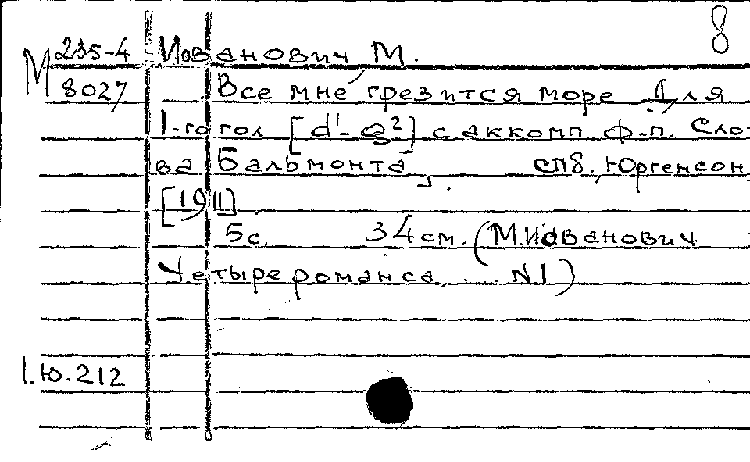 8
М 235-4 Иованович, М.
8027 Все мне грезится море. Для
1-го гол. [d¹-g²] с аккомп. ф-п. Сло-
ва Бальмонта. СПб., Юргенсон,
[1911].
5 с. 34 см. (М. Иованович
Четыре романса. N.1)
I.Ю.212